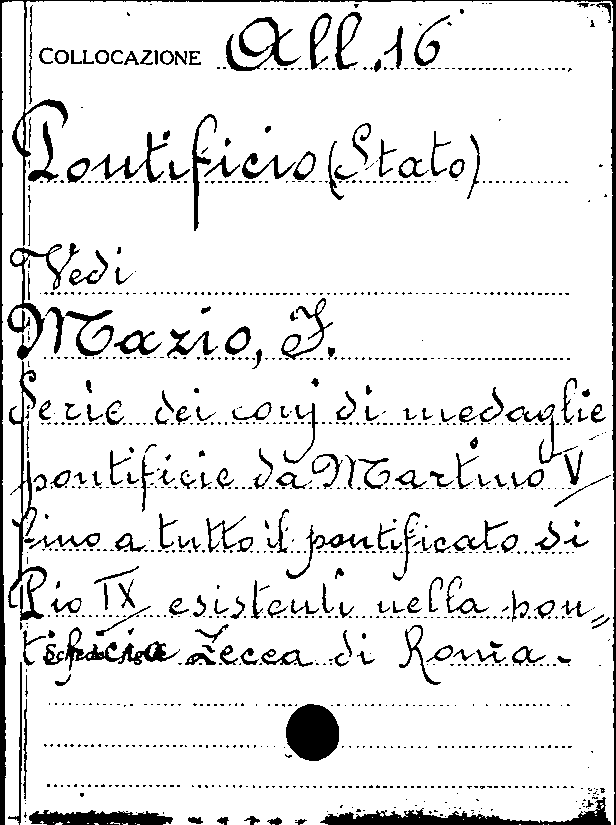 COLLOCAZIONE All. 16
Pontificio (Stato)
Vedi
Mazio, F.
Serie dei conj di medaglie
pontificie da Martino V
fino a tutto il pontificato di
Pio IX esistenti nella pon=
tificia Zecca di Roma.